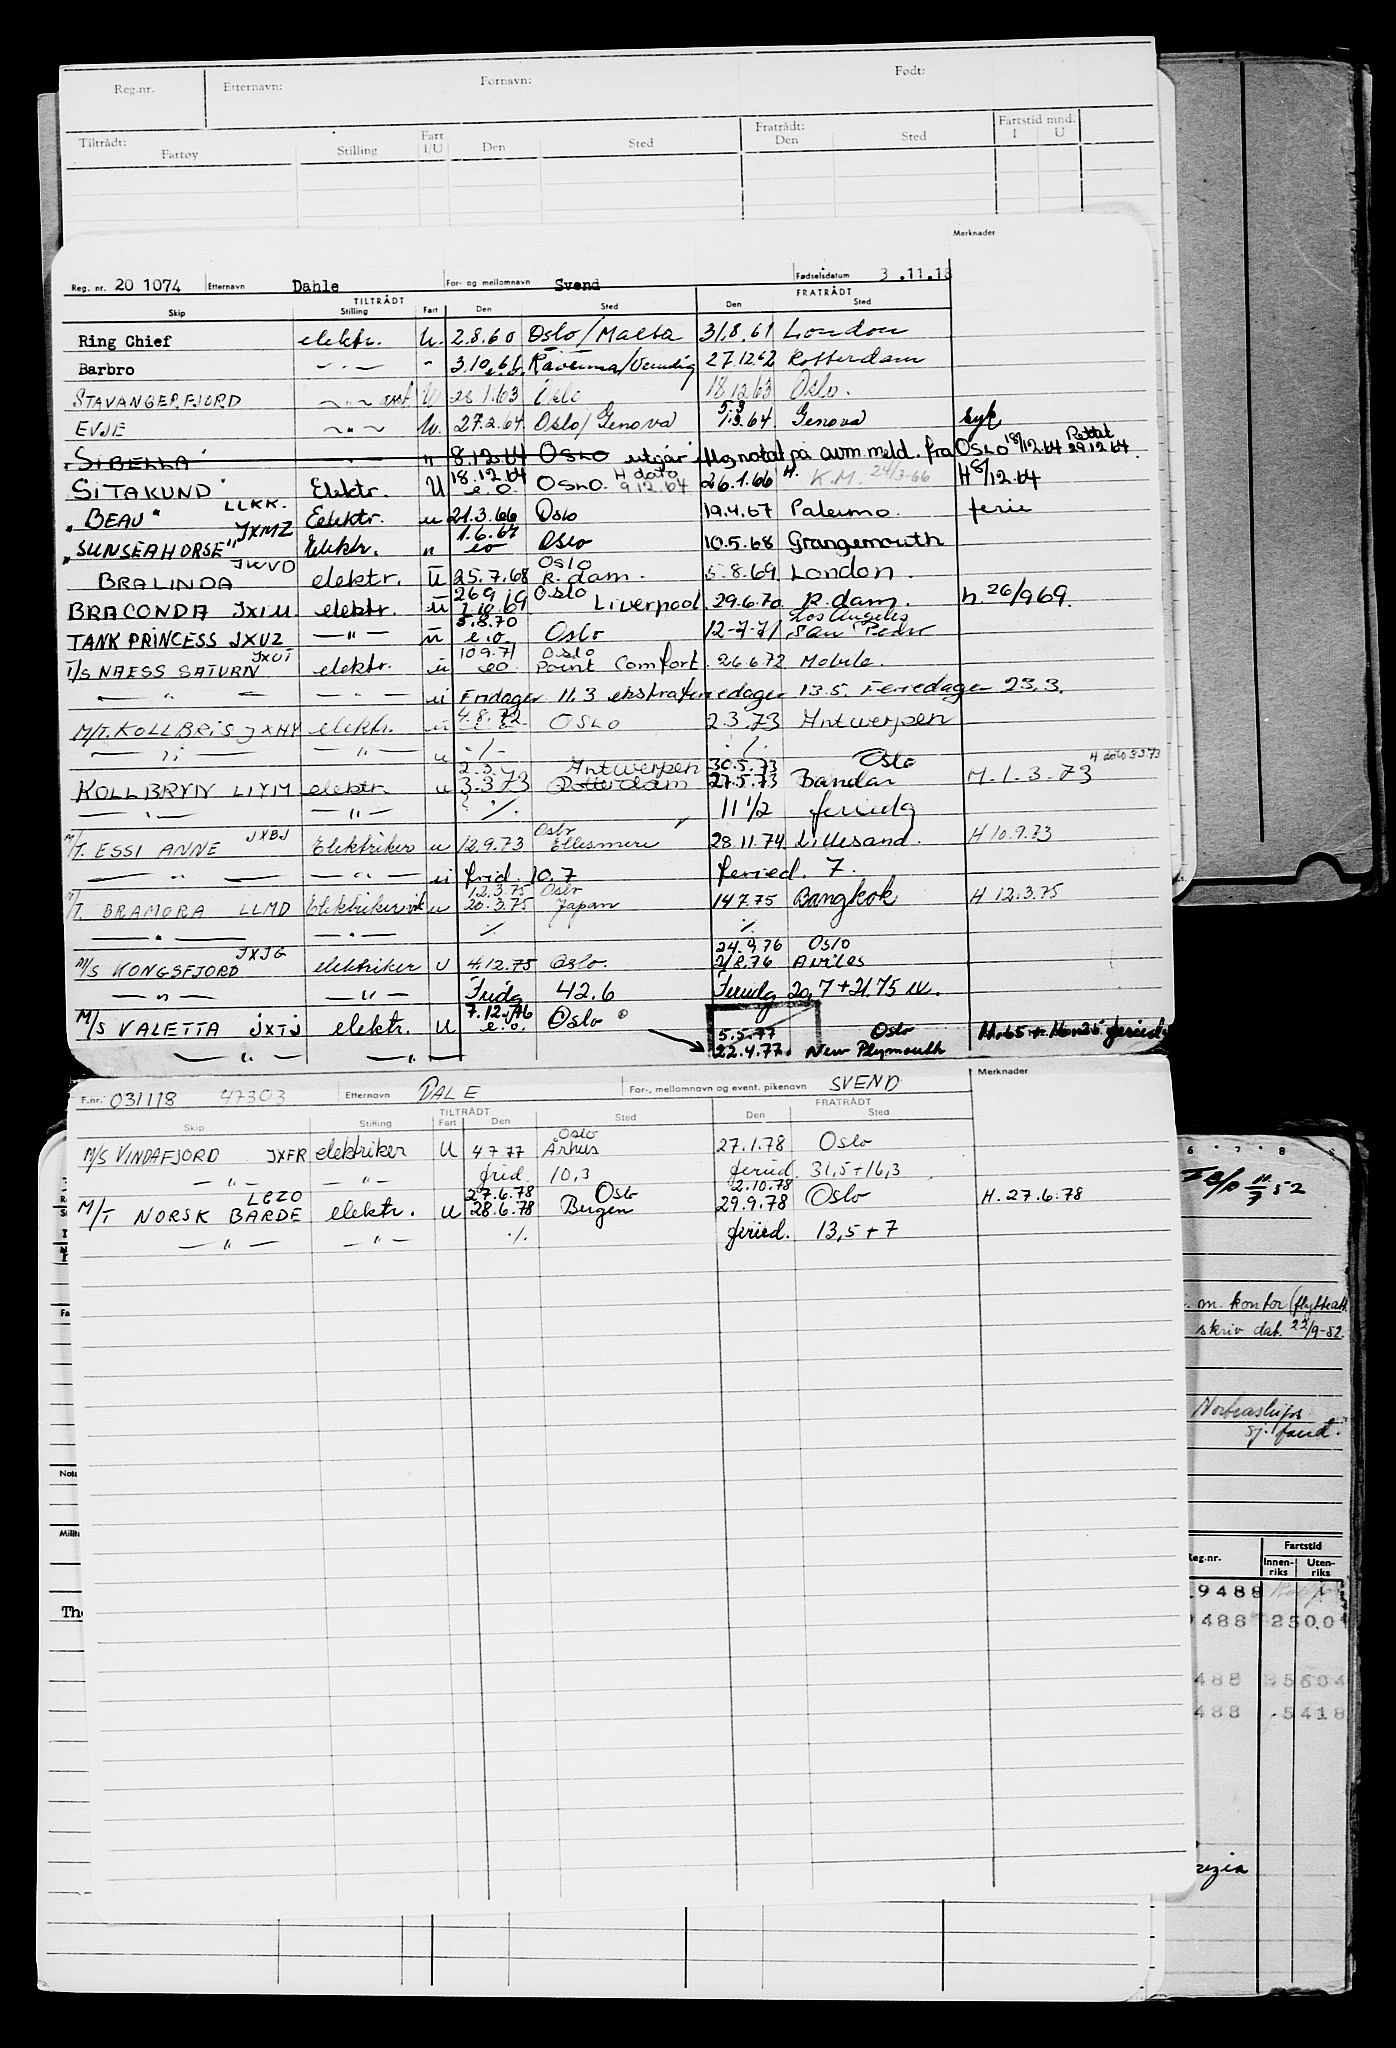 Reg.nr. Etternavn: Fornavn: Født:
Tiltrådt: Fartøy Stilling Fart I/U Den Sted Fratrådt: Den Sted Fartstid mnd. I U
Merknader
Reg. nr. 20 1074 Etternavn Dahle For- og mellomnavn Svend Fødselsdatum 3.11.18
TILTRÅDT FRATRÅDT
Skip Stilling Fart Den Sted Den Sted
Ring Chief elektr. U. 2.8.60 Oslo/Malta 31.8.61 London
Barbro —"— " 3.10.61 Ravenna/Venedig 27.12.62 Rotterdam
STAVANGERFJORD ~"~ U 28.1.63 Oslo 18.12.63 Oslo.
EVJE ~"~ U. 27.2.64 Oslo/Genova 5.3 64 Genova syk
"SIBELLA" " " 8.12.64 OSLO utgår ifl. notat på avm.meld. fra OSLO 18/12.64 Rettet 29.12.64.
SITAKUND Elektr. U 18.12.64 e.o. OSLO. H dato 9.12.64 26.1.66 H. K.M. 24/3-66 H 8/12.64
"BEAU" LLKK. Elektr. u 21.3.66 Oslo 19.4.67 Palermo. ferie
"SUNSEAHORSE" JXMZ Elektr. " 1.6.67 eo Oslo 10.5.68 Grangemouth
BRALINDA JWVD elektr. U 25.7.68 Oslo R.dam. 5.8.69 London.
BRACONDA JXIU elektr. u 26 9 69 1.10.69 Oslo Liverpool 29.6.70 R.dam. h. 26/9 69.
TANK PRINCESS JXUZ —"— u 5.8.70 e.o. Oslo 12-7-71 Los Angeles San Pedro
T/S NAESS SATURN JXUI elektr. u 10 9.71 eo Oslo Point Comfort 26.6.72 Mobile.
— " — — " — u Fridager 11.3 ekstraferiedager 13.5. Feriedager 23.3.
M/T. KOLLBRIS JXHY elektr. u 4.8.72 OSLO 2.3.73 Antwerpen
— " — — " — u -/- -/-
KOLLBRYN LIYM elektr. u 2.3. 3.3.73 Antwerpen Rotterdam 30.5.73 27.5.73 Oslo Bandar M. 1.3.73 H dato 3 3 73
— " — — " — ./. 11 1/2 feriedg
M/T. ESSI ANNE JXBJ Elektriker u 12.9.73 Oslo Ellesmere 28.11.74 Lillesand. H 10.9.73
— " — — " — u frid. 10.7 feried. 7.
M/T. BRAMORA LLMD Elektriker u 12.3.75 20.3.75 Oslo Japan 14.7.75 Bangkok H 12.3.75
— " — — " — ./. ./.
M/S KONGSFJORD JXJG elektriker U 4.12.75 Oslo. 24.9.76 21.8.76 Oslo Aviles
— " — — " — Fridg 42.6 Feriedg 20,7 + 21.75
M/S VALETTA JXTJ elektr. U 7.12.76 e.o. Oslo 5.5.77 22.4.77. Oslo New Plymouth
— " — — " —
Merknader
F.nr. 031118 47303 Etternavn DALE For-, mellomnavn og event. pikenavn SVEND
TILTRÅDT FRATRÅDT
Skip Stilling Fart Den Sted Den Sted
M/S VINDAFJORD JXFR elektriker U 4 7 77 Oslo Århus 27.1.78 Oslo
— " — — " — frid. 10,3 feried. 31,5+16,3
M/T NORSK BARDE LEZO elektr. U 27.6.78 28.6.78 Oslo Bergen 2.10.78 29.9.78 Oslo H. 27.6.78
— " — — " — ./. feried. 13,5 + 7
6 7 8
52
m. kontor (flyttatt.
skriv dat. 22/9-52.
Nortraships
sj. fond.
Reg.nr. Fartstid
Innen-riks Uten-riks
9488
488 2500
488 5604
488 5418